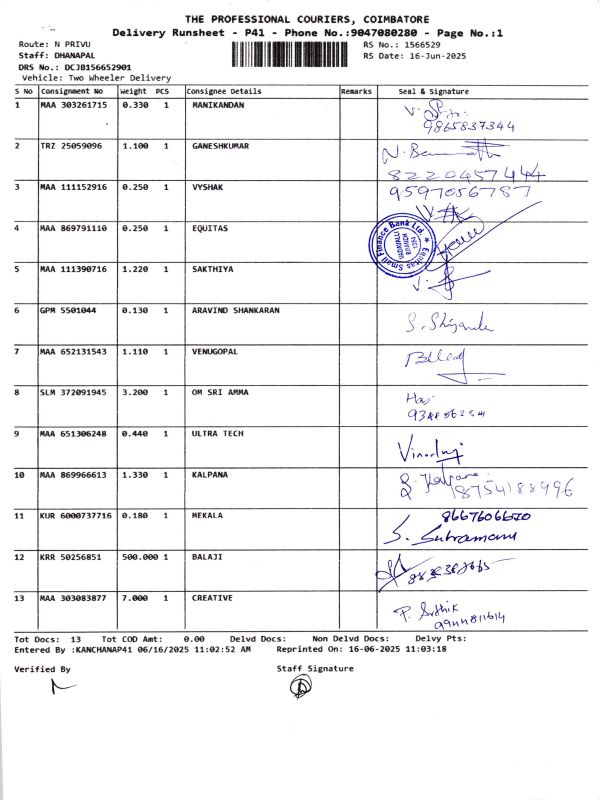 THE PROFESSIONAL COURIERS, COIMBATORE
Delivery Runsheet - P41 - Phone No.:9047080280 - Page No.:1
Route: N PRIVU RS No.: 1566529
Staff: DHANAPAL RS Date: 16-Jun-2025
DRS No.: DCJB156652901
Vehicle: Two Wheeler Delivery
S No Consignment No Weight PCS Consignee Details Remarks Seal & Signature
1 MAA 303261715 0.330 1 MANIKANDAN
9865837344
2 TRZ 25059096 1.100 1 GANESHKUMAR
8220457444
3 MAA 111152916 0.250 1 VYSHAK 9597056787
4 MAA 869791110 0.250 1 EQUITAS
Equitas Small Finance Bank Ltd.
BRANCH
5 MAA 111390716 1.220 1 SAKTHIYA
6 GPM 5501044 0.130 1 ARAVIND SHANKARAN
7 MAA 652131543 1.110 1 VENUGOPAL
8 SLM 372091945 3.200 1 OM SRI AMMA
9 MAA 651306248 0.440 1 ULTRA TECH
10 MAA 869966613 1.330 1 KALPANA
8754188996
11 KUR 6000737716 0.180 1 MEKALA
12 KRR 50256851 500.000 1 BALAJI
13 MAA 303083877 7.000 1 CREATIVE
9944811614
Tot Docs: 13 Tot COD Amt: 0.00 Delvd Docs: Non Delvd Docs: Delvy Pts:
Entered By :KANCHANAP41 06/16/2025 11:02:52 AM Reprinted On: 16-06-2025 11:03:18
Verified By Staff Signature